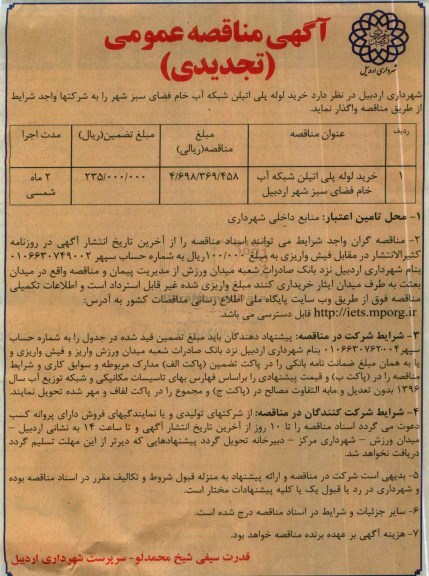 آگهی مناقصه عمومی
(تجدیدی)
شهرداری اردبیل
شهرداری اردبیل در نظر دارد خرید لوله پلی اتیلن شبکه آب خام فضای سبز شهر را به شرکتها واجد شرایط
از طریق مناقصه واگذار نماید.
ردیف عنوان مناقصه مبلغ مناقصه(ریالی) مبلغ تضمین(ریال) مدت اجرا
۱ خرید لوله پلی اتیلن شبکه آب خام فضای سبز شهر اردبیل ۴/۶۹۸/۳۶۹/۴۵۸ ۲۳۵/۰۰۰/۰۰۰ ۲ ماه شمسی
۱- محل تامین اعتبار: منابع داخلی شهرداری
۲- مناقصه گران واجد شرایط می توانند اسناد مناقصه را از آخرین تاریخ انتشار آگهی در روزنامه
کثیرالانتشار در مقابل فیش واریزی به مبلغ ۱۰۰/۰۰۰ریال به شماره حساب سپهر ۰۱۰۶۶۳۰۷۴۹۰۰۲
بنام شهرداری اردبیل نزد بانک صادرات شعبه میدان ورزش از مدیریت پیمان و مناقصه واقع در میدان
بعثت به طرف میدان ایثار خریداری کنند مبلغ واریزی شده غیر قابل استرداد است و اطلاعات تکمیلی
مناقصه فوق از طریق وب سایت پایگاه ملی اطلاع رسانی مناقصات کشور به آدرس:
http://iets.mporg.ir قابل دسترسی می باشد.
۳- شرایط شرکت در مناقصه: پیشنهاد دهندگان باید مبلغ تضمین قید شده در جدول را به شماره حساب
سپهر۰۱۰۶۶۳۰۷۶۳۰۰۴ بنام شهرداری اردبیل نزد بانک صادرات شعبه میدان ورزش واریز و فیش واریزی و
یا به همان مبلغ ضمانت نامه بانکی را در پاکت تضمین (پاکت الف) مدارک مربوطه و سوابق کاری و شرایط
مناقصه را در (پاکت ب) و قیمت پیشنهادی را براساس فهارس بهای تاسیسات مکانیکی و شبکه توزیع آب سال
۱۳۹۶ بدون تعدیل و مابه التفاوت مصالح در (پاکت ج) و مجموع را در پاکت لفاف و مهر شده تحویل نمایند.
۴- شرایط شرکت کنندگان در مناقصه: از شرکتهای تولیدی و یا نمایندگیهای فروش دارای پروانه کسب
دعوت می گردد اسناد مناقصه را تا ۱۰ روز از آخرین تاریخ انتشار آگهی و تا ساعت ۱۴ به نشانی اردبیل -
میدان ورزش - شهرداری مرکز - دبیرخانه تحویل گردد پیشنهادهایی که دیرتر از این مهلت تسلیم گردد
دریافت نخواهد شد.
۵- بدیهی است شرکت در مناقصه و ارائه پیشنهاد به منزله قبول شروط و تکالیف مقرر در اسناد مناقصه بوده
و شهرداری در رد یا قبول یک یا کلیه پیشنهادات مختار است.
۶- سایر جزئیات و شرایط در اسناد مناقصه درج شده است.
۷- هزینه آگهی بر عهده برنده مناقصه خواهد بود.
قدرت سیفی شیخ محمدلو- سرپرست شهرداری اردبیل